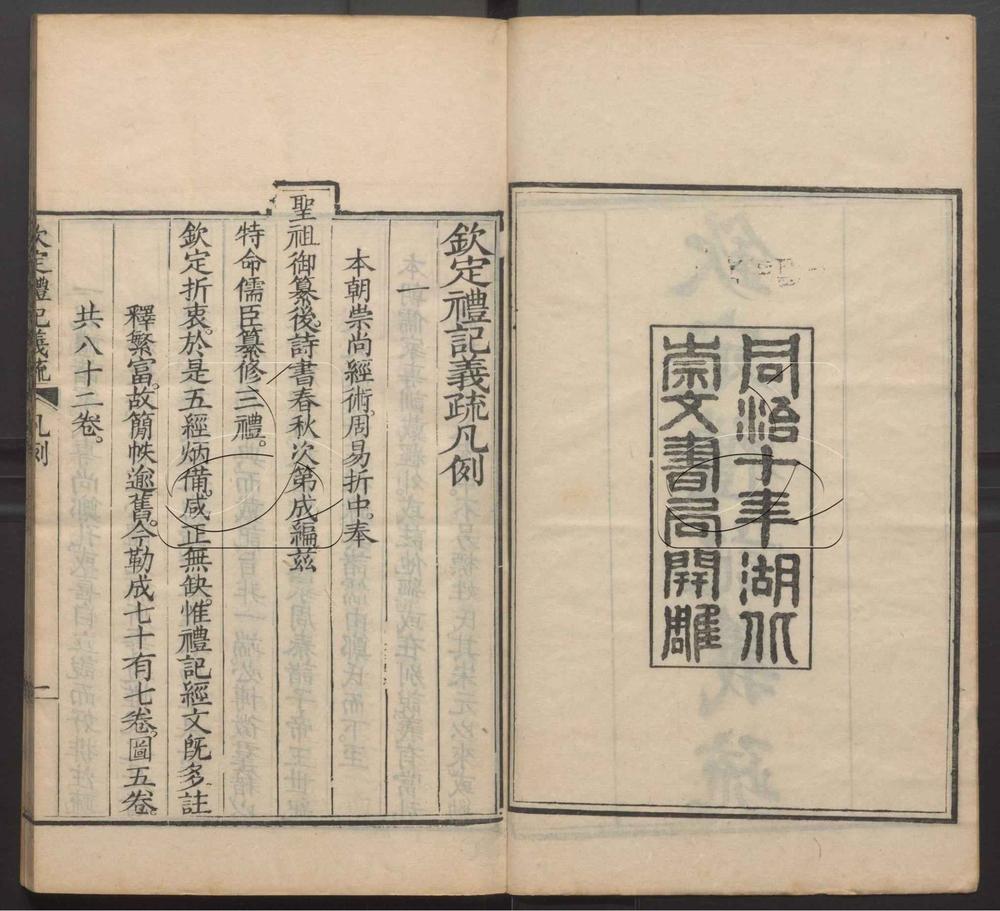 同治十年湖北
崇文書局開雕
欽定禮記義疏凡例
一
本朝崇尚經術。周易折中。奉
聖祖御纂後。詩書春秋次第成編。茲
特命儒臣纂修三禮。
欽定折衷。於是五經炳備。咸正無缺。惟禮記經文旣多。註
釋繁富。故簡帙逾舊。今勒成七十有七卷。圖五卷。
共八十二卷。
欽定禮記義疏 凡例 一